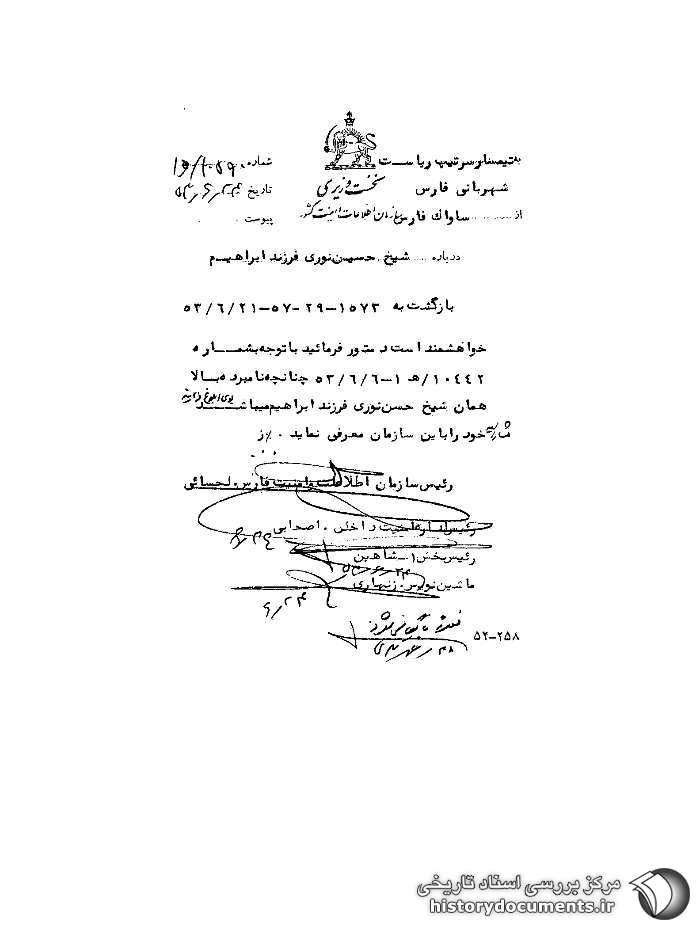 به تیمسار سرتیپ ریاست شماره
شهربانی فارس نخست وزیری تاریخ ۵۳/۶/۲۴
از ساواک فارس سازمان اطلاعات و امنیت کشور پیوست
درباره شیخ حسین نوری فرزند ابراهیم
بازگشت به ۱۵۷۳-۲۹-۵۷-۵۳/۶/۲۱
خواهشمند است دستور فرمائید با توجه بشماره
۱۰۴۴۲/هـ ۱-۵۳/۶/۶ چنانچه نامبرده بالا
همان شیخ حسن نوری فرزند ابراهیم میباشد
خود را باین سازمان معرفی نماید
رئیس سازمان اطلاعات و امنیت فارس. لحسائی
رئیس اداره امنیت داخلی. اصحابی
رئیس بخش ۱-شاهین
ماشین نویس. زنهاری
۶/۲۴
۵۲-۲۵۸
مرکز بررسی اسناد تاریخی
historydocuments.ir